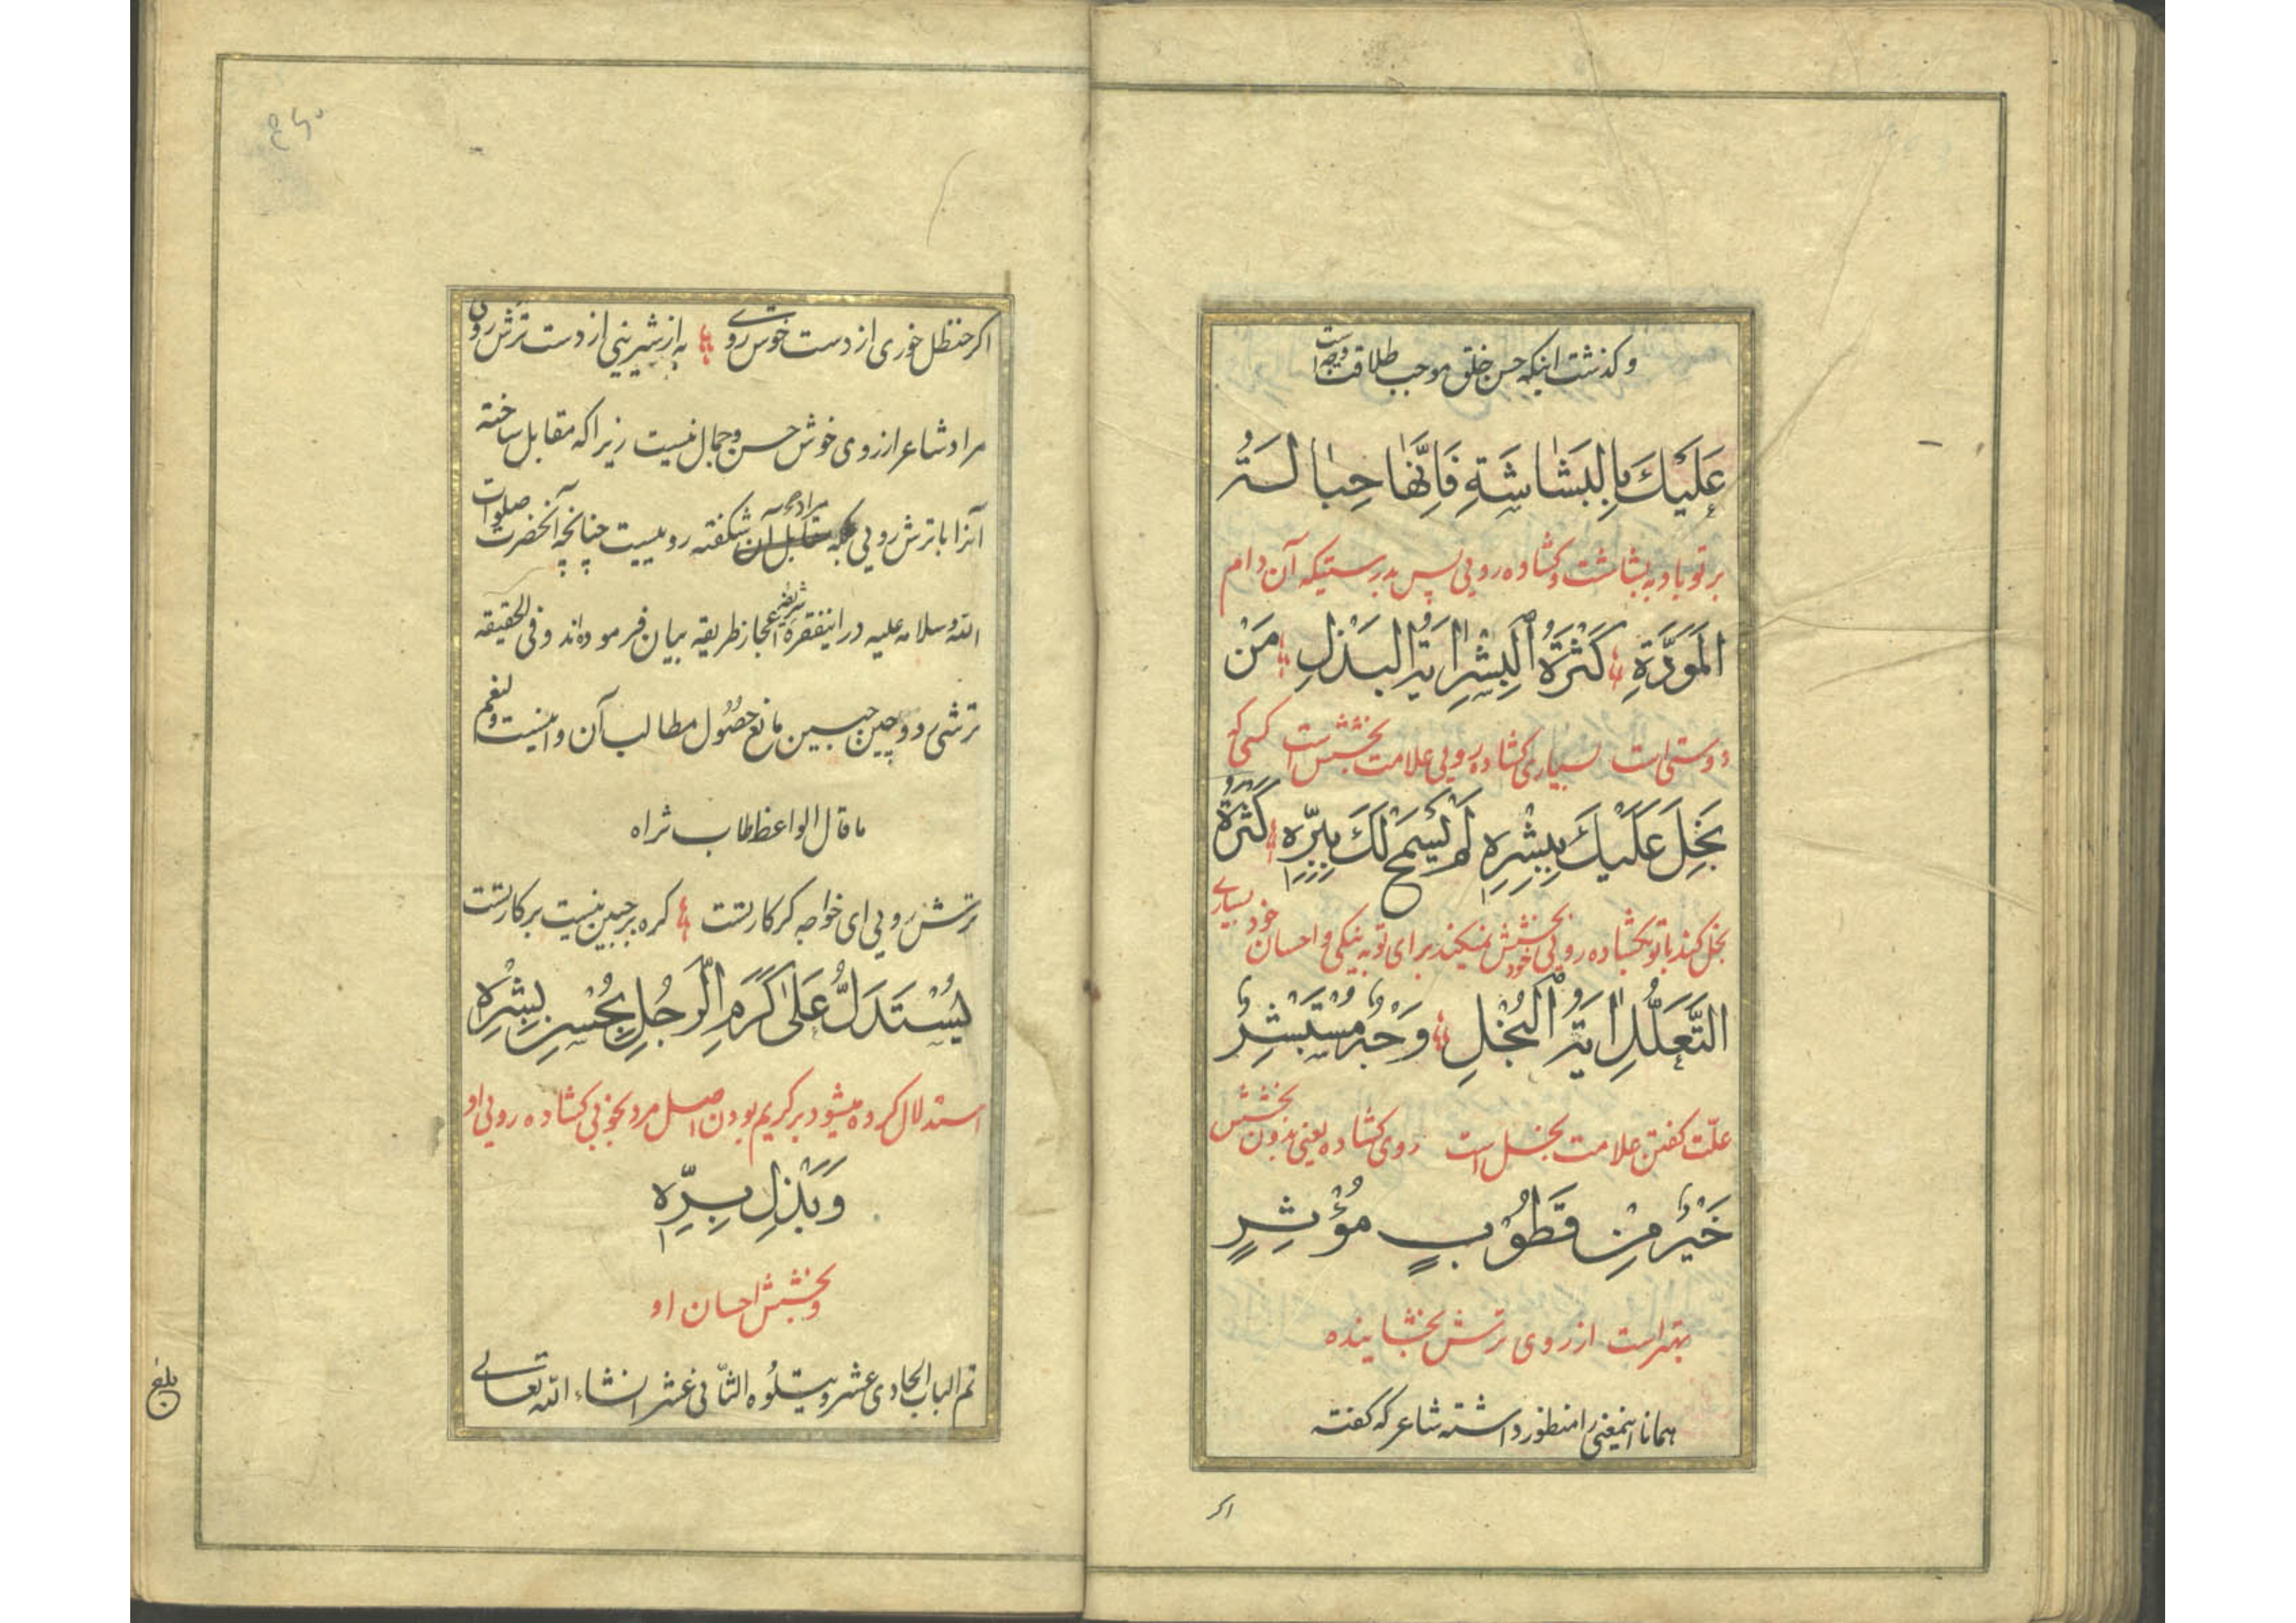 و کذشت اینکه حسن خلق موجب طلاقت وجه است
عَلَيْكَ بِالْبَشَاشَةِ فَاِنَّهَا حِبَالَةُ
بر تو باد به بشاشت و کشاده رویی پس بدرستیکه آن دام
الْمَوَدَّةِ كَثْرَةُ الْبِشْرِ ايَةُ الْبَذْلِ مَنْ
دوستی است بسیاری کشاده رویی علامت بخشش است کسی که
بَخِلَ عَلَيْكَ بِبِشْرِهِ لَمْ يَسْمَحْ لَكَ بِبِرِّهِ كَثْرَةُ
بخل کند باتو بکشاده رویی خود بخشش نمیکند برای تو به نیکی و احسان خود بسیاری
التَّعَلُّلِ ايَةُ الْبُخْلِ وَجْهٌ مُسْتَبْشِرٌ
علّت کفتن علامت بخل است روی کشاده یعنی بدون بخشش
خَيْرٌ مِنْ قَطُوْبٍ مُؤْثِرٍ
بهتر است از روی ترش بخشاینده
همانا اینمعنی را منظور داشته شاعر که کفته
اکر
اکر حنظل خوری از دست خوش روی به از شیرینی از دست ترش روی
مراد شاعر از روی خوش حسن و جمال نیست زیرا که مقابل ساخته
آنرا با ترش رویی بلکه مقابل آن مرادش شکفته رویست چنانچه آنحضرت صلوات
الله وسلامه علیه در اینفقره شریفه اعجاز طریقه بیان فرموده اند و فی الحقیقه
ترشی رو و چین جبین مانع حصول مطالب آن و این نیست ولنعم
ما قال الواعظ طاب ثراه
ترش رویی ای خواجه کر کار تست کره بر جبین نیست بر کار تست
يُسْتَدَلُّ عَلَى كَرَمِ الرَّجُلِ بِحُسْنِ بِشْرِهِ
استدلال کرده میشود بر کریم بودن اصل مرد بخوبی کشاده رویی او
وَبَذْلِ بِرِّهِ
و بخشش احسان او
تم الباب الحادی عشر و یتلوه الثانی عشر انشاء الله تعالی
بلغ